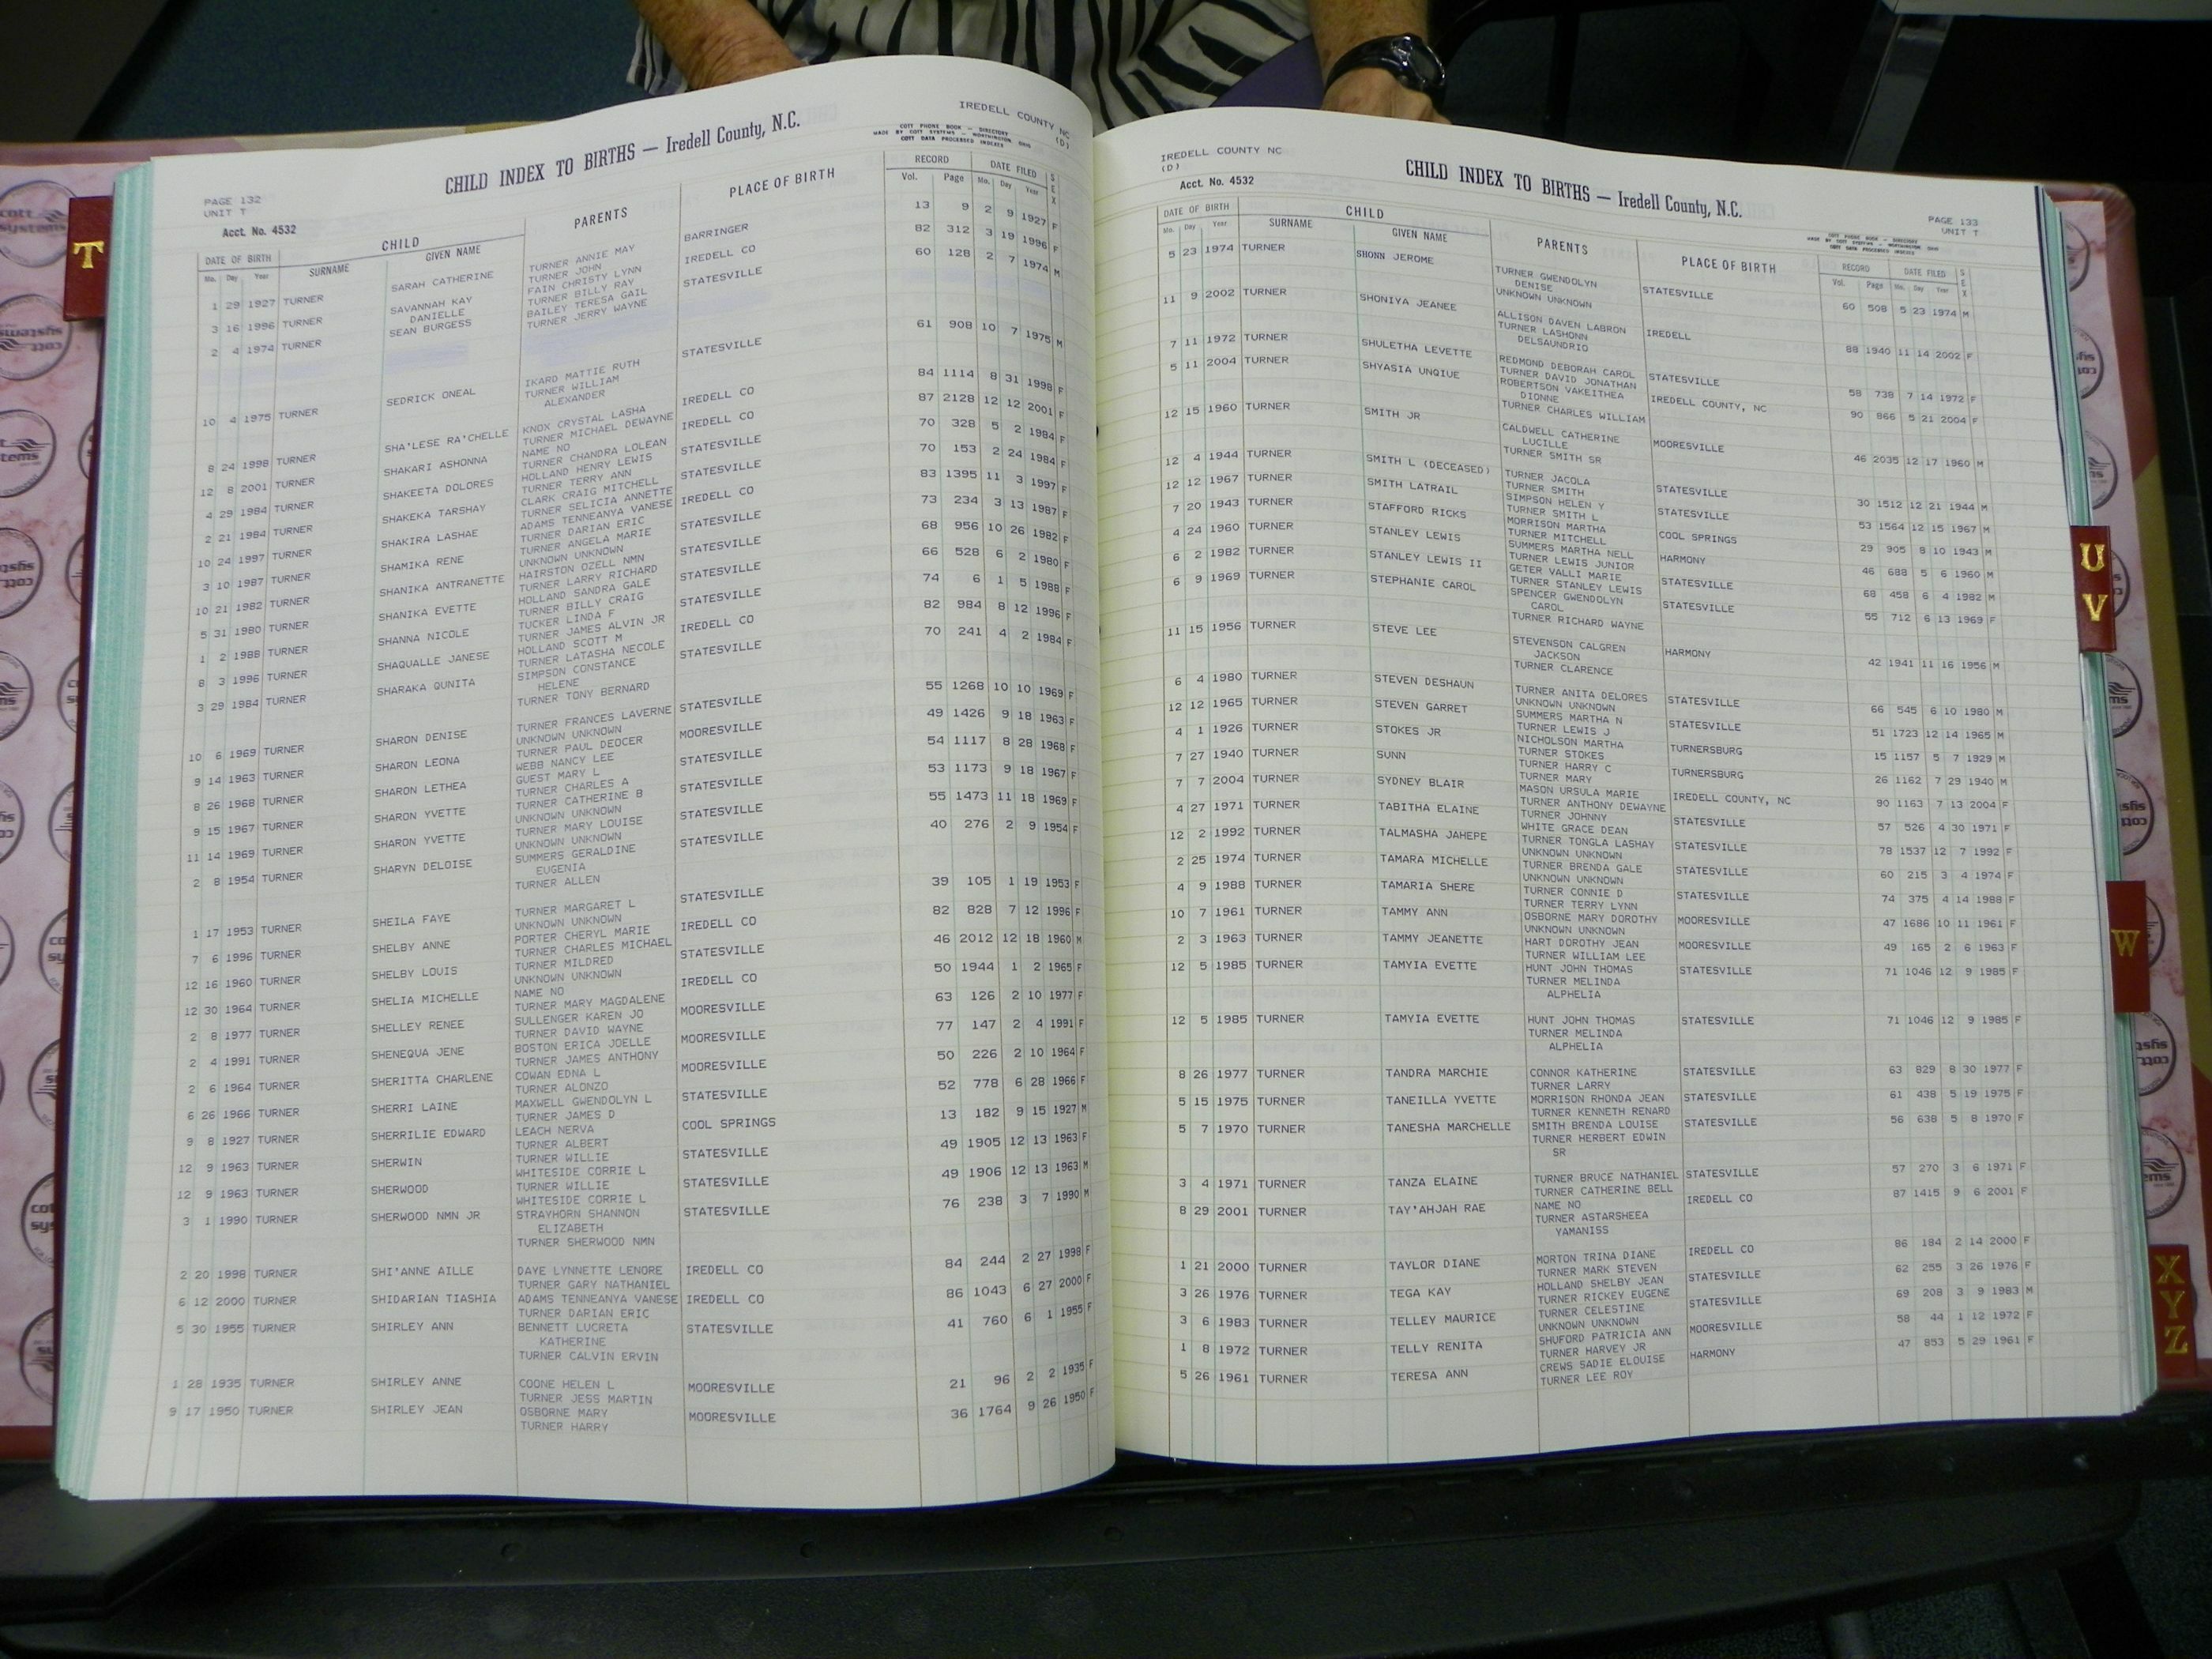 IREDELL COUNTY NC
(D)
CHILD INDEX TO BIRTHS — Iredell County, N.C.
COTT PHONE BOOK — DIRECTORY
MADE BY COTT SYSTEMS — WORTHINGTON, OHIO
COTT DATA PROCESSED INDEXES
PAGE 132
UNIT T
Acct. No. 4532
DATE OF BIRTH CHILD PARENTS PLACE OF BIRTH RECORD DATE FILED SEX
Mo. Day Year SURNAME GIVEN NAME Vol. Page Mo. Day Year
1 29 1927 TURNER SARAH CATHERINE TURNER ANNIE MAY BARRINGER 13 9 2 9 1927 F
TURNER JOHN
3 16 1996 TURNER SAVANNAH KAY FAIN CHRISTY LYNN IREDELL CO 82 312 3 19 1996 F
DANIELLE TURNER BILLY RAY
2 4 1974 TURNER SEAN BURGESS BAILEY TERESA GAIL STATESVILLE 60 128 2 7 1974 M
TURNER JERRY WAYNE
10 4 1975 TURNER SEDRICK ONEAL IKARD MATTIE RUTH STATESVILLE 61 908 10 7 1975 M
TURNER WILLIAM
ALEXANDER
8 24 1998 TURNER SHA'LESE RA'CHELLE KNOX CRYSTAL LASHA IREDELL CO 84 1114 8 31 1998 F
TURNER MICHAEL DEWAYNE
12 8 2001 TURNER SHAKARI ASHONNA NAME NO IREDELL CO 87 2128 12 12 2001 F
TURNER CHANDRA LOLEAN
4 29 1984 TURNER SHAKEETA DOLORES HOLLAND HENRY LEWIS STATESVILLE 70 328 5 2 1984 F
TURNER TERRY ANN
2 21 1984 TURNER SHAKEKA TARSHAY CLARK CRAIG MITCHELL STATESVILLE 70 153 2 24 1984 F
TURNER SELICIA ANNETTE
10 24 1997 TURNER SHAKIRA LASHAE ADAMS TENNEANYA VANESE IREDELL CO 83 1395 11 3 1997 F
TURNER DARIAN ERIC
3 10 1987 TURNER SHAMIKA RENE TURNER ANGELA MARIE STATESVILLE 73 234 3 13 1987 F
UNKNOWN UNKNOWN
10 21 1982 TURNER SHANIKA ANTRANETTE HAIRSTON OZELL NMN STATESVILLE 68 956 10 26 1982 F
TURNER LARRY RICHARD
5 31 1980 TURNER SHANIKA EVETTE HOLLAND SANDRA GALE STATESVILLE 66 528 6 2 1980 F
TURNER BILLY CRAIG
1 2 1988 TURNER SHANNA NICOLE TUCKER LINDA F STATESVILLE 74 6 1 5 1988 F
TURNER JAMES ALVIN JR
8 3 1996 TURNER SHAQUALLE JANESE HOLLAND SCOTT M IREDELL CO 82 984 8 12 1996 F
TURNER LATASHA NECOLE
3 29 1984 TURNER SHARAKA QUNITA SIMPSON CONSTANCE STATESVILLE 70 241 4 2 1984 F
HELENE
TURNER TONY BERNARD
10 6 1969 TURNER SHARON DENISE TURNER FRANCES LAVERNE STATESVILLE 55 1268 10 10 1969 F
UNKNOWN UNKNOWN
9 14 1963 TURNER SHARON LEONA TURNER PAUL DEOCER MOORESVILLE 49 1426 9 18 1963 F
WEBB NANCY LEE
8 26 1968 TURNER SHARON LETHEA GUEST MARY L STATESVILLE 54 1117 8 28 1968 F
TURNER CHARLES A
9 15 1967 TURNER SHARON YVETTE TURNER CATHERINE B STATESVILLE 53 1173 9 18 1967 F
UNKNOWN UNKNOWN
11 14 1969 TURNER SHARON YVETTE TURNER MARY LOUISE STATESVILLE 55 1473 11 18 1969 F
UNKNOWN UNKNOWN
2 8 1954 TURNER SHARYN DELOISE SUMMERS GERALDINE STATESVILLE 40 276 2 9 1954 F
EUGENIA
TURNER ALLEN
1 17 1953 TURNER SHEILA FAYE TURNER MARGARET L STATESVILLE 39 105 1 19 1953 F
UNKNOWN UNKNOWN
7 6 1996 TURNER SHELBY ANNE PORTER CHERYL MARIE IREDELL CO 82 828 7 12 1996 F
TURNER CHARLES MICHAEL
12 16 1960 TURNER SHELBY LOUIS TURNER MILDRED STATESVILLE 46 2012 12 18 1960 M
UNKNOWN UNKNOWN
12 30 1964 TURNER SHELIA MICHELLE NAME NO IREDELL CO 50 1944 1 2 1965 F
TURNER MARY MAGDALENE
2 8 1977 TURNER SHELLEY RENEE SULLENGER KAREN JO MOORESVILLE 63 126 2 10 1977 F
TURNER DAVID WAYNE
2 4 1991 TURNER SHENEQUA JENE BOSTON ERICA JOELLE MOORESVILLE 77 147 2 4 1991 F
TURNER JAMES ANTHONY
2 6 1964 TURNER SHERITTA CHARLENE COWAN EDNA L MOORESVILLE 50 226 2 10 1964 F
TURNER ALONZO
6 26 1966 TURNER SHERRI LAINE MAXWELL GWENDOLYN L STATESVILLE 52 778 6 28 1966 F
TURNER JAMES D
9 8 1927 TURNER SHERRILIE EDWARD LEACH NERVA COOL SPRINGS 13 182 9 15 1927 M
TURNER ALBERT
12 9 1963 TURNER SHERWIN TURNER WILLIE STATESVILLE 49 1905 12 13 1963 F
WHITESIDE CORRIE L
12 9 1963 TURNER SHERWOOD TURNER WILLIE STATESVILLE 49 1906 12 13 1963 M
WHITESIDE CORRIE L
3 1 1990 TURNER SHERWOOD NMN JR STRAYHORN SHANNON STATESVILLE 76 238 3 7 1990 M
ELIZABETH
TURNER SHERWOOD NMN
2 20 1998 TURNER SHI'ANNE AILLE DAYE LYNNETTE LENORE IREDELL CO 84 244 2 27 1998 F
TURNER GARY NATHANIEL
6 12 2000 TURNER SHIDARIAN TIASHIA ADAMS TENNEANYA VANESE IREDELL CO 86 1043 6 27 2000 F
TURNER DARIAN ERIC
5 30 1955 TURNER SHIRLEY ANN BENNETT LUCRETA STATESVILLE 41 760 6 1 1955 F
KATHERINE
TURNER CALVIN ERVIN
1 28 1935 TURNER SHIRLEY ANNE COONE HELEN L MOORESVILLE 21 96 2 2 1935 F
TURNER JESS MARTIN
9 17 1950 TURNER SHIRLEY JEAN OSBORNE MARY MOORESVILLE 36 1764 9 26 1950 F
TURNER HARRY
IREDELL COUNTY NC
(D)
Acct. No. 4532
CHILD INDEX TO BIRTHS — Iredell County, N.C.
PAGE 133
UNIT T
COTT PHONE BOOK — DIRECTORY
MADE BY COTT SYSTEMS — WORTHINGTON, OHIO
COTT DATA PROCESSED INDEXES
DATE OF BIRTH CHILD PARENTS PLACE OF BIRTH RECORD DATE FILED SEX
Mo. Day Year SURNAME GIVEN NAME Vol. Page Mo. Day Year
5 23 1974 TURNER SHONN JEROME TURNER GWENDOLYN STATESVILLE 60 508 5 23 1974 M
DENISE
UNKNOWN UNKNOWN
11 9 2002 TURNER SHONIYA JEANEE ALLISON DAVEN LABRON IREDELL 88 1940 11 14 2002 F
TURNER LASHONN
DELSAUNDRIO
7 11 1972 TURNER SHULETHA LEVETTE REDMOND DEBORAH CAROL STATESVILLE 58 738 7 14 1972 F
TURNER DAVID JONATHAN
5 11 2004 TURNER SHYASIA UNQIUE ROBERTSON VAKEITHEA IREDELL COUNTY, NC 90 866 5 21 2004 F
DIONNE
TURNER CHARLES WILLIAM
12 15 1960 TURNER SMITH JR CALDWELL CATHERINE MOORESVILLE 46 2035 12 17 1960 M
LUCILLE
TURNER SMITH SR
12 4 1944 TURNER SMITH L (DECEASED) TURNER JACOLA STATESVILLE 30 1512 12 21 1944 M
TURNER SMITH
12 12 1967 TURNER SMITH LATRAIL SIMPSON HELEN Y STATESVILLE 53 1564 12 15 1967 M
TURNER SMITH L
7 20 1943 TURNER STAFFORD RICKS MORRISON MARTHA COOL SPRINGS 29 905 8 10 1943 M
TURNER MITCHELL
4 24 1960 TURNER STANLEY LEWIS SUMMERS MARTHA NELL HARMONY 46 688 5 6 1960 M
TURNER LEWIS JUNIOR
6 2 1982 TURNER STANLEY LEWIS II GETER VALLI MARIE STATESVILLE 68 458 6 4 1982 M
TURNER STANLEY LEWIS
6 9 1969 TURNER STEPHANIE CAROL SPENCER GWENDOLYN STATESVILLE 55 712 6 13 1969 F
CAROL
TURNER RICHARD WAYNE
11 15 1956 TURNER STEVE LEE STEVENSON CALGREN HARMONY 42 1941 11 16 1956 M
JACKSON
TURNER CLARENCE
6 4 1980 TURNER STEVEN DESHAUN TURNER ANITA DELORES STATESVILLE 66 545 6 10 1980 M
UNKNOWN UNKNOWN
12 12 1965 TURNER STEVEN GARRET SUMMERS MARTHA N STATESVILLE 51 1723 12 14 1965 M
TURNER LEWIS J
4 1 1926 TURNER STOKES JR NICHOLSON MARTHA TURNERSBURG 15 1157 5 7 1929 M
TURNER STOKES
7 27 1940 TURNER SUNN TURNER HARRY C TURNERSBURG 26 1162 7 29 1940 M
TURNER MARY
7 7 2004 TURNER SYDNEY BLAIR MASON URSULA MARIE IREDELL COUNTY, NC 90 1163 7 13 2004 F
TURNER ANTHONY DEWAYNE
4 27 1971 TURNER TABITHA ELAINE TURNER JOHNNY STATESVILLE 57 526 4 30 1971 F
WHITE GRACE DEAN
12 2 1992 TURNER TALMASHA JAHEPE TURNER TONGLA LASHAY STATESVILLE 78 1537 12 7 1992 F
UNKNOWN UNKNOWN
2 25 1974 TURNER TAMARA MICHELLE TURNER BRENDA GALE STATESVILLE 60 215 3 4 1974 F
UNKNOWN UNKNOWN
4 9 1988 TURNER TAMARIA SHERE TURNER CONNIE D STATESVILLE 74 375 4 14 1988 F
TURNER TERRY LYNN
10 7 1961 TURNER TAMMY ANN OSBORNE MARY DOROTHY MOORESVILLE 47 1686 10 11 1961 F
UNKNOWN UNKNOWN
2 3 1963 TURNER TAMMY JEANETTE HART DOROTHY JEAN MOORESVILLE 49 165 2 6 1963 F
TURNER WILLIAM LEE
12 5 1985 TURNER TAMYIA EVETTE HUNT JOHN THOMAS STATESVILLE 71 1046 12 9 1985 F
TURNER MELINDA
ALPHELIA
12 5 1985 TURNER TAMYIA EVETTE HUNT JOHN THOMAS STATESVILLE 71 1046 12 9 1985 F
TURNER MELINDA
ALPHELIA
8 26 1977 TURNER TANDRA MARCHIE CONNOR KATHERINE STATESVILLE 63 829 8 30 1977 F
TURNER LARRY
5 15 1975 TURNER TANEILLA YVETTE MORRISON RHONDA JEAN STATESVILLE 61 438 5 19 1975 F
TURNER KENNETH RENARD
5 7 1970 TURNER TANESHA MARCHELLE SMITH BRENDA LOUISE STATESVILLE 56 638 5 8 1970 F
TURNER HERBERT EDWIN
SR
3 4 1971 TURNER TANZA ELAINE TURNER BRUCE NATHANIEL STATESVILLE 57 270 3 6 1971 F
TURNER CATHERINE BELL
8 29 2001 TURNER TAY'AHJAH RAE NAME NO IREDELL CO 87 1415 9 6 2001 F
TURNER ASTARSHEEA
YAMANISS
1 21 2000 TURNER TAYLOR DIANE MORTON TRINA DIANE IREDELL CO 86 184 2 14 2000 F
TURNER MARK STEVEN
3 26 1976 TURNER TEGA KAY HOLLAND SHELBY JEAN STATESVILLE 62 255 3 26 1976 F
TURNER RICKEY EUGENE
3 6 1983 TURNER TELLEY MAURICE TURNER CELESTINE STATESVILLE 69 208 3 9 1983 M
UNKNOWN UNKNOWN
1 8 1972 TURNER TELLY RENITA SHUFORD PATRICIA ANN MOORESVILLE 58 44 1 12 1972 F
TURNER HARVEY JR
5 26 1961 TURNER TERESA ANN CREWS SADIE ELOUISE HARMONY 47 853 5 29 1961 F
TURNER LEE ROY
T
U
V
W
X
Y
Z
cott
systems